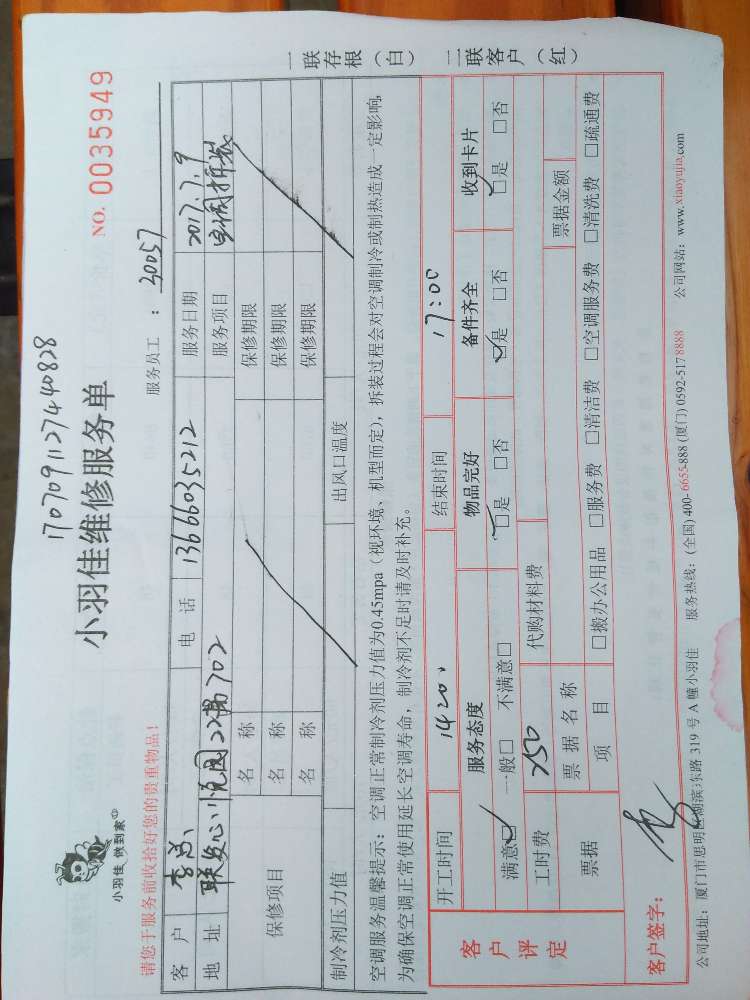 17070911274440828
小羽佳 做到家
小羽佳维修服务单
NO. 0035949
请您于服务前收拾好您的贵重物品！
服务员工 ： 30057
客 户 李总 电 话 13666035212 服务日期 2017.7.9
地 址 联发心悦园22梯702 服务项目 空调拆装
保修项目 名 称 保修期限
名 称 保修期限
名 称 保修期限
制冷剂压力值 出风口温度
空调服务温馨提示：空调正常制冷剂压力值为0.45mpa（视环境、机型而定），拆装过程会对空调制冷或制热造成一定影响，
为确保空调正常使用延长空调寿命，制冷剂不足时请及时补充。
一联存根（白） 二联客户（红）
客户评定
开工时间 1420 结束时间 17:00
服务态度 物品完好 备件齐全 收到卡片
满意☑ 一般□ 不满意□ ☑是 □否 ☑是 □否 ☑是 □否
工时费 250 代购材料费
票据 票 据 名 称 票据金额
项 目 □搬办公用品 □服务费 □清洁费 □空调服务费 □清洗费 □疏通费
客户签字：
公司地址：厦门市思明区湖滨东路 319 号 A 幢小羽佳 服务热线：(全国) 400-6655-888 (厦门) 0592-5178888 公司网站：www.xiaoyujia.com